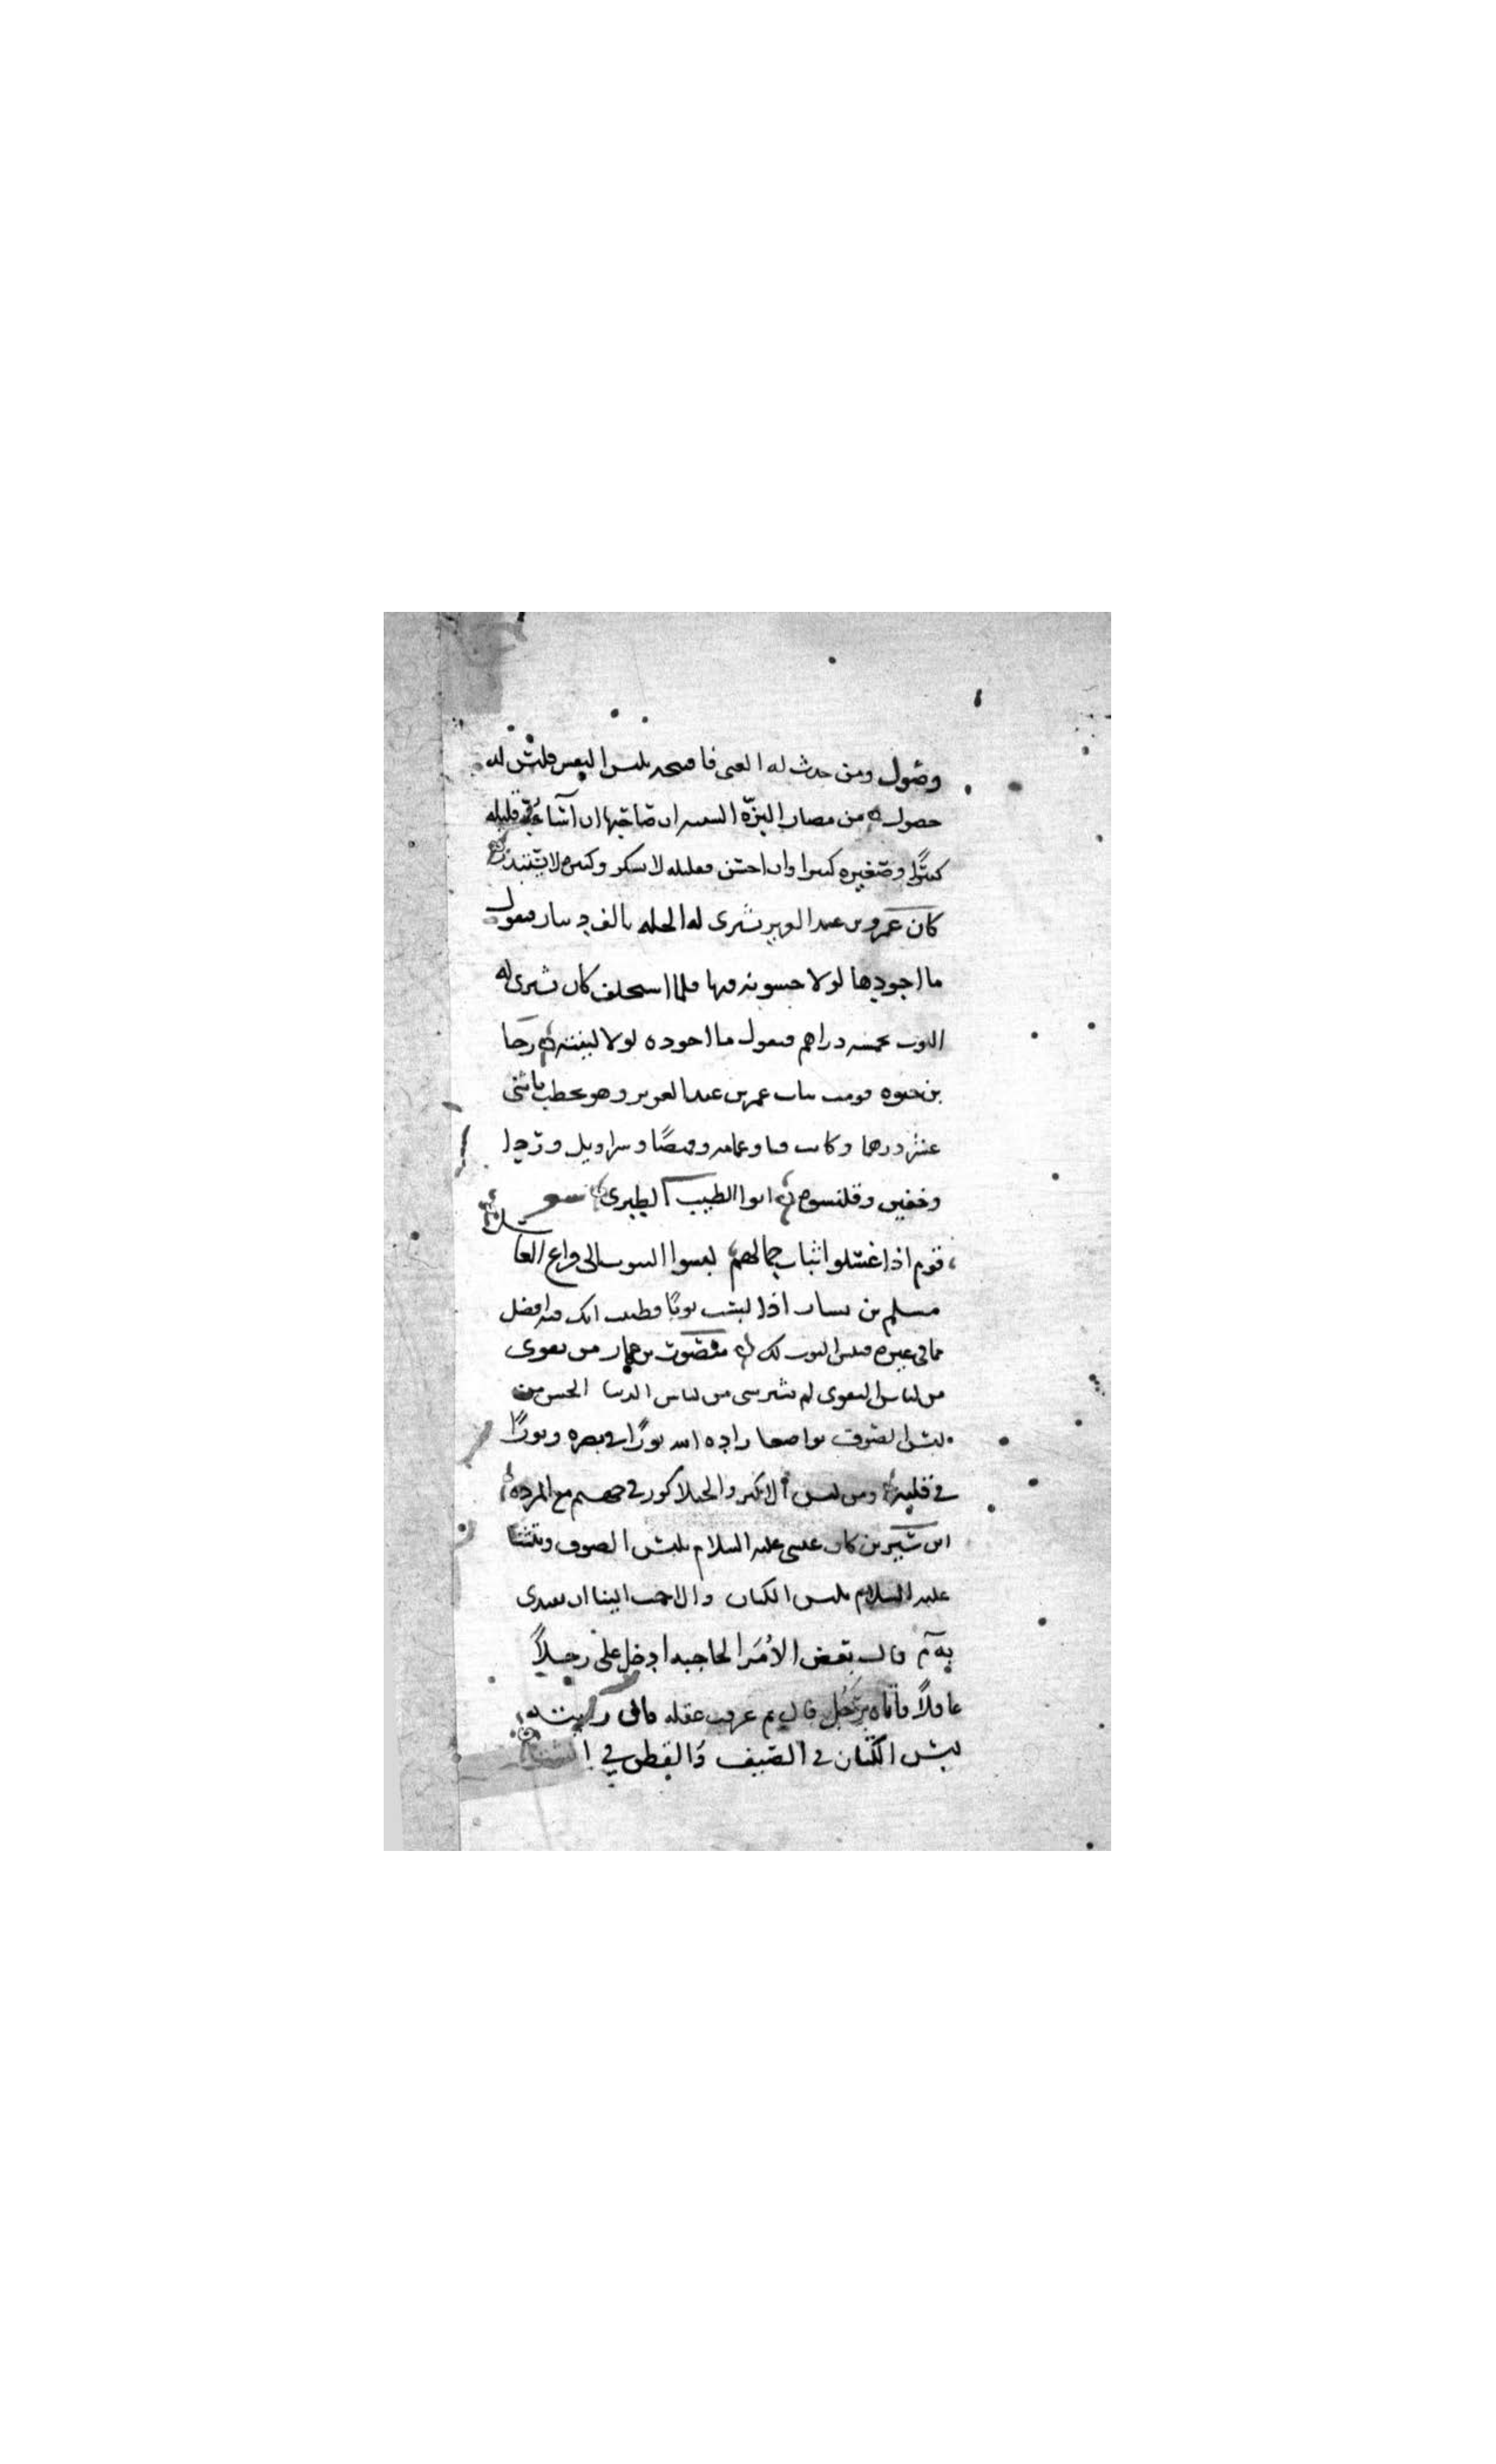 وصول ومن حدث له الغنى فافتخر بلبس النفيس فليس له
حصول من مصاب البزة النفيسة ان صاحبها ان اساء عد قليله
كثيرًا وصغيره كبيرا وان احسن فقليله لا يشكر وكثيره لا
كان عمر بن عبد العزيز يشترى له الحله بالف دينار فيقول
ما اجودها لولا خشونة فيها فلما استخلف كان يشترى له
الثوب بخمسه دراهم فيقول ما اجوده لولا لينه رجا
بن حيوه قومت ثياب عمر بن عبد العزيز وهو يخطب باثنى
عشر درهما وكانت قبا وعمامه وقميصًا وسراويل وردا
وخفين وقلنسوه ابوا الطيب الطبرى شعر
قوم اذا غسلوا ثياب جمالهم لبسوا البيوت الى فراغ الغا سل
مسلم بن يسار اذا لبست ثوبًا فظننت انك فيه افضل
مما فى غيره فبئس الثوب لك منصور بن عمار من تعرى
من لباس التقوى لم يستر بشى من لباس الدنيا الحسن من
لبس الصوف تواضعا زاده الله نورًا فى بصره ونورًا
فى قلبه ومن لبس للكبر والخيلا كور فى جهنم مع المرده
ابن سيرين كان عيسى عليه السلام يلبس الصوف ونبينا
عليه السلام يلبس الكتان والاحب الينا ان نقتدى
به قال بعض الأمرا لحاجبه ادخل على رجلاً
عاقلاً فاتاه برجل قال بم عرفت عقله قال رايته
يلبس الكتان فى الصيف والقطن فى الشتا